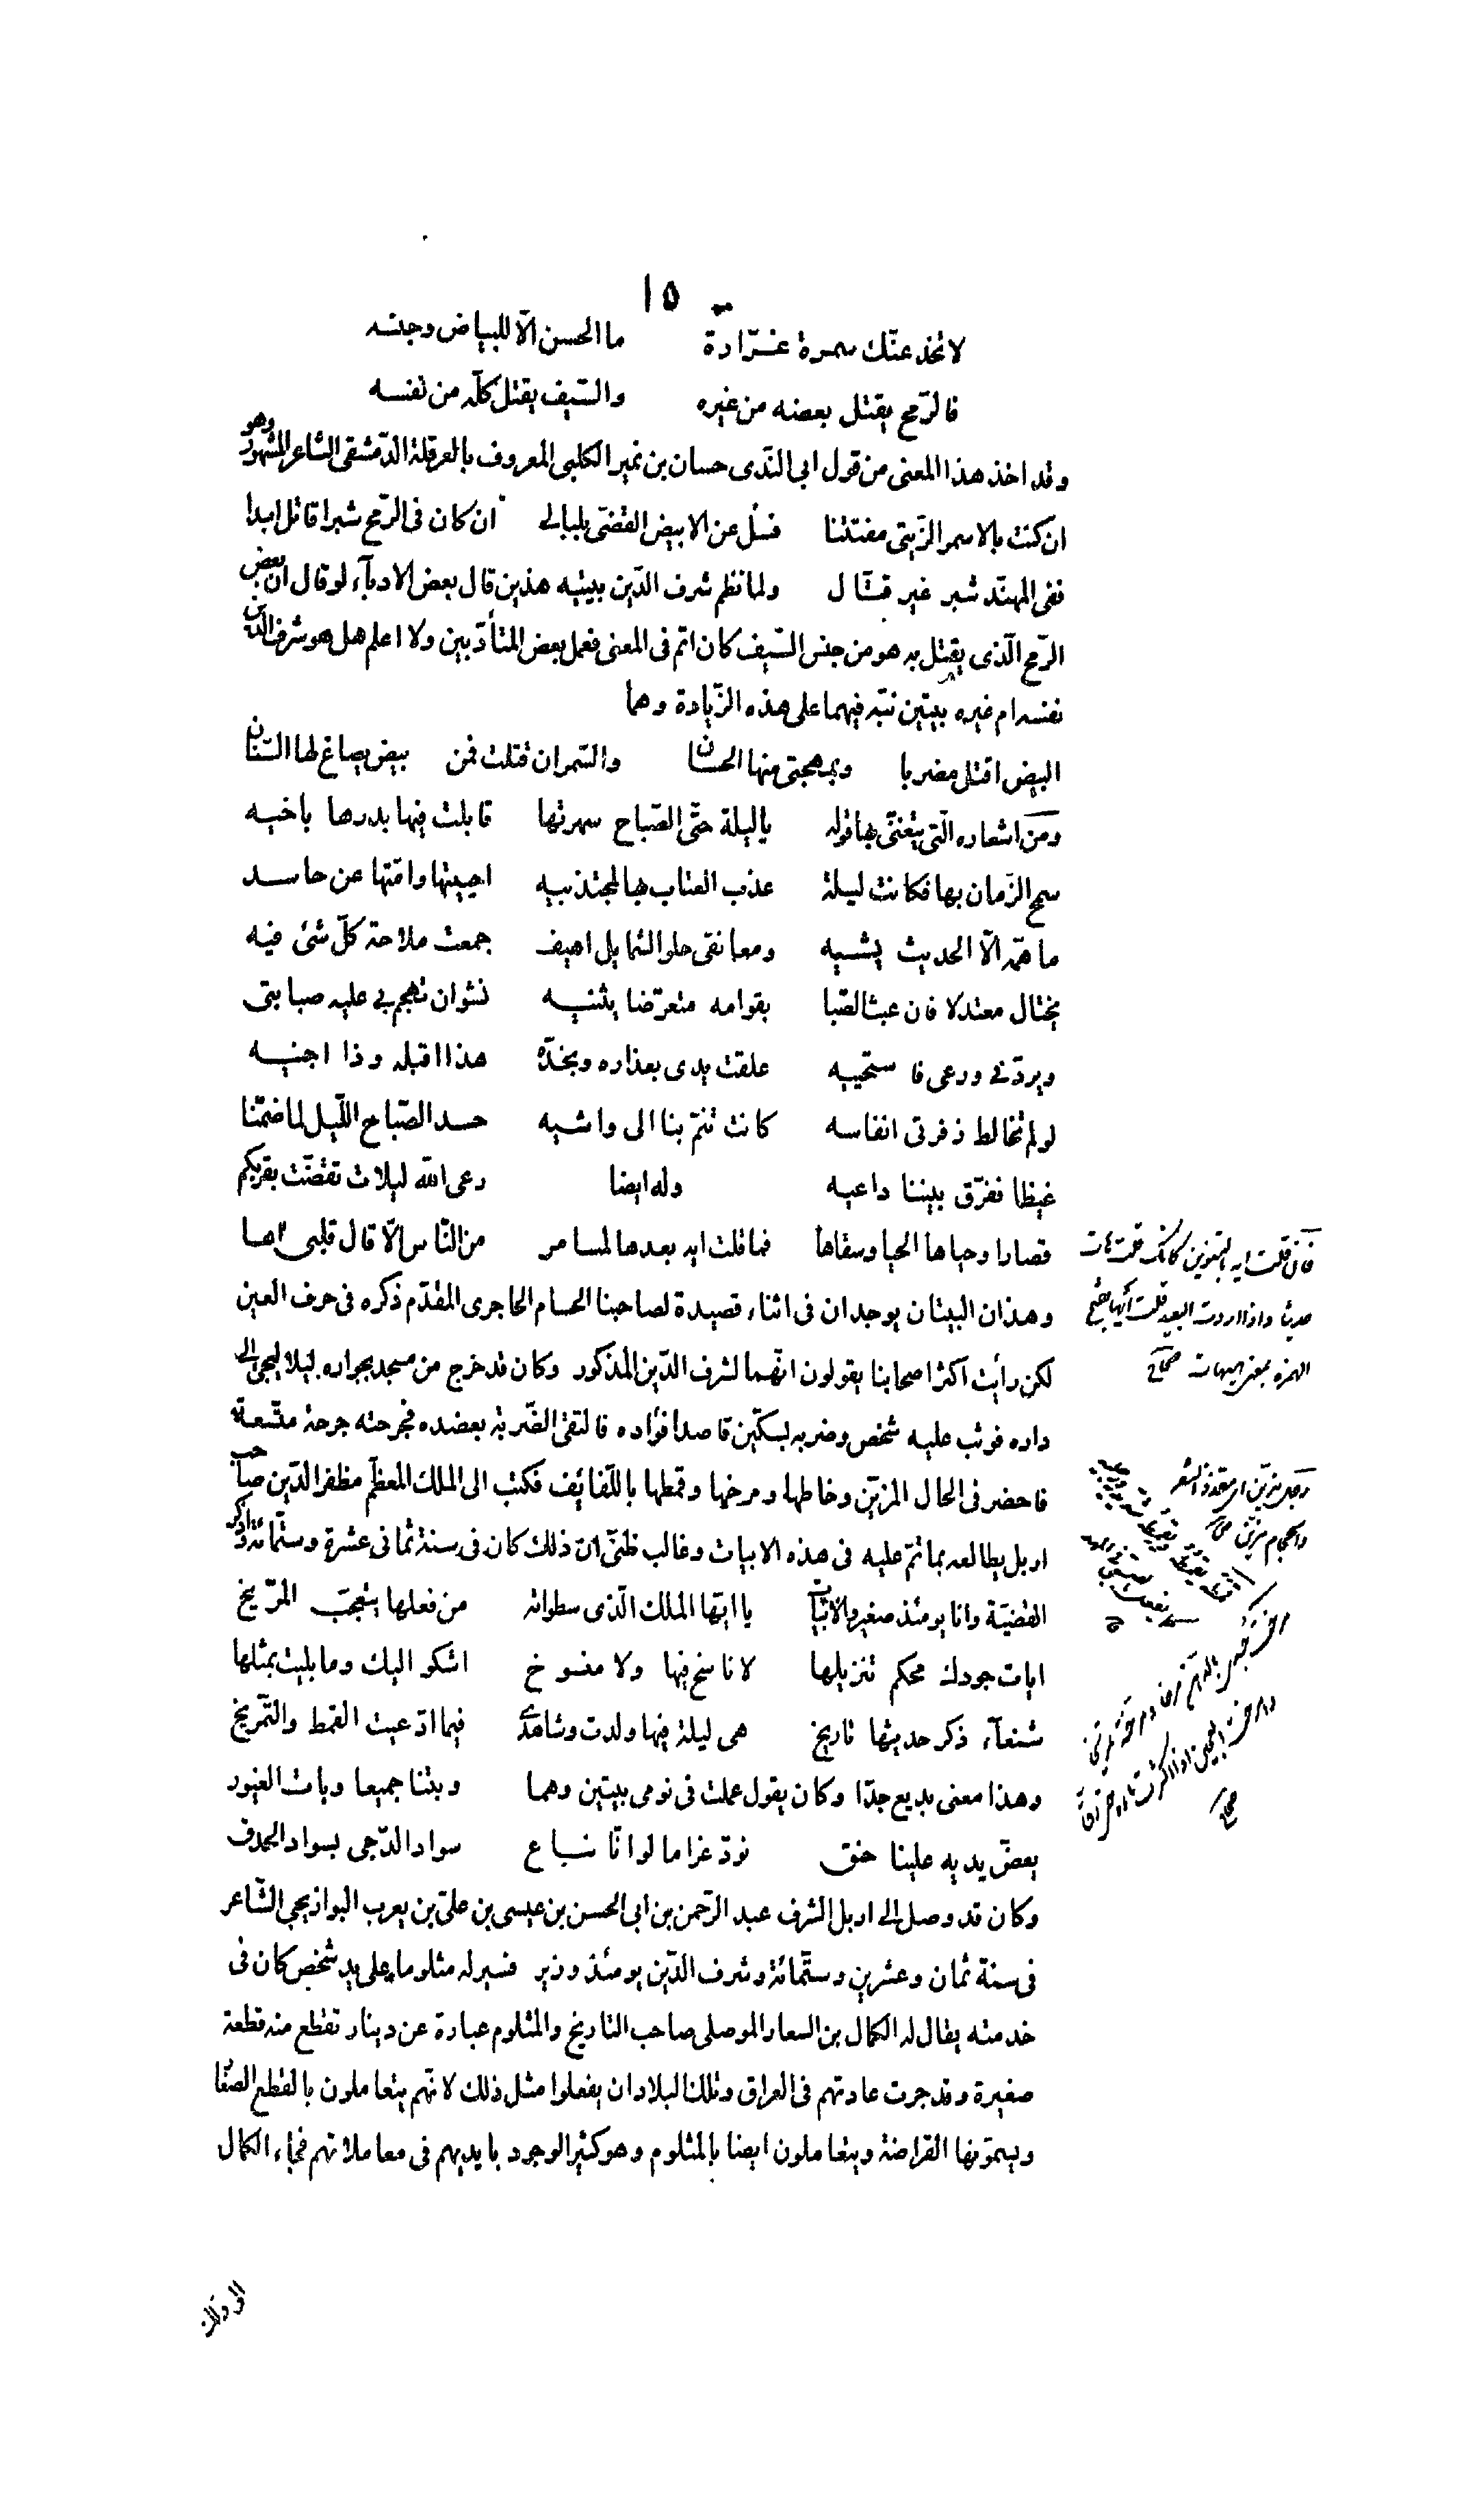 ١٥
لا تخدعنّك سمرة غرّارة ما الحسن الّا للبياض وجنسه
فالرّمح يقتل بعضه من غيره والسّيف يقتل كلّه من نفسه
وقد اخذ هذا المعنى من قول ابى النّدى حسان بن نمير الكلبى المعروف بالعرقلة الدّمشقى الشاعر المشهور وهو
ان كنت بالاسمر الزّيتى مفتتنا فسل عن الابيض الفضّى بلبالى ان كان فى الرّمح شبرا قاتل ابدا
ففى المهنّد شبر غير قتّال ولما نظم شرف الدّين بيتيه هذين قال بعض الادبآء لو قال ان بعض
الرّمح الّذى يقتل به هو من جنس السّيف كان اتم فى المعنى فعمل بعض المتأدّبين ولا اعلم هل هو شرف الدّين
نفسه ام غيره بيتين نبّه فيهما على هذه الزّيادة وهما
البيض اقتل مضربا وبمهجتى منها الحسان والسّمر ان قتلت فمن بيض يصاغ لها السّنان
ومن اشعاره الّتى يتغنّى بها قوله يا ليلة حتّى الصّباح سهرتها قابلت فيها بدرها باخيه
سمح الزّمان بها فكانت ليلة عذب العتاب بها لمجتذبيه احييتها وامتّها عن حاسد
ما همّه الّا الحديث يشيه ومعانقى حلو الشمايل اهيف جمعت ملاحة كلّ شئ فيه
يختال معتدلا فان عبث الصّبا بقوامه متعرّضا يثنيه نشوان تهجم بى عليه صبابتى
ويردّنى ورعى فاستحييه علقت يدى بعذاره وبخدّه هذا اقبله وذا اجنيه
لو لم تخالط زفرتى انفاسه كانت تنمّ بنا الى واشيه حسد الصّباح اللّيل لما ضمّنا
غيظا ففرّق بيننا داعيه وله ايضا رعى الله ليلات تقضّت بقربكم
قصارا وحياها الحيا وسقاها فما قلت ايه بعدها لمسامر من النّاس الّا قال قلبى آها
وهذان البيتان يوجدان فى اثناء قصيدة لصاحبنا الحسام الحاجرى المقدّم ذكره فى حرف العين
لكن رأيت اكثر اصحابنا يقولون انّهما لشرف الدّين المذكور وكان قد خرج من مسجد بجواره ليلا ليجئ الى
داره فوثب عليه شخص وضربه بسكّين قاصدا فؤاده فالتقى الضّربة بعضده فجرحته جرحة متّسعة
فاحضر فى الحال المزيّن وخاطها ومرخها وقمطها باللّفائف فكتب الى الملك المعظّم مظفر الدّين صاحب
اربل يطالعه بما تمّ عليه فى هذه الابيات وغالب ظنّى انّ ذلك كان فى سنة ثمانى عشرة وستّمائة واذكر
القضيّة وانا يومئذ صغير والابيات يا ايّها الملك الّذى سطواته من فعلها يتعجّب المرّيخ
ايات جودك محكم تنزيلها لا ناسخ فيها ولا منسوخ اشكو اليك وما بليت بمثلها
شنعآء ذكر حديثها تاريخ هى ليلة فيها ولدت وشاهدى فيما ادّعيت القمط والتّمريخ
وهذا معنى بديع جدّا وكان يقول عملت فى نومى بيتين وهما وبتنا جميعا وبات الغيور
يعضّ يديه علينا حنق نودّ غراما لو انّا نباع سواد الدّجى بسواد الحدق
وكان قد وصل الى اربل الشرف عبد الرّحمن بن ابى الحسن بن عيسى بن علىّ بن يعرب البوازيجى الشّاعر
فى سنة ثمان وعشرين وستّمائة وشرف الدّين يومئذ وزير فسير له مثلوما على يد شخص كان فى
خدمته يقال له الكمال بن السعار الموصلى صاحب التاريخ والمثلوم عبارة عن دينار تقطع منه قطعة
صغيرة وقد جرت عادتهم فى العراق وتلك البلاد ان يفعلوا مثل ذلك لانّهم يتعاملون بالقطع الصّغا
ويسمّونها القراضة ويتعاملون ايضا بالمثلوم وهو كثير الوجود بايديهم فى معاملاتهم فجاء الكمال
فان قلت ايه بالتنوين كانك قلت هات
حديثا واذا اردت البعيد قلت ايها بفتح
الهمزة بمعنى هيهات صحاح